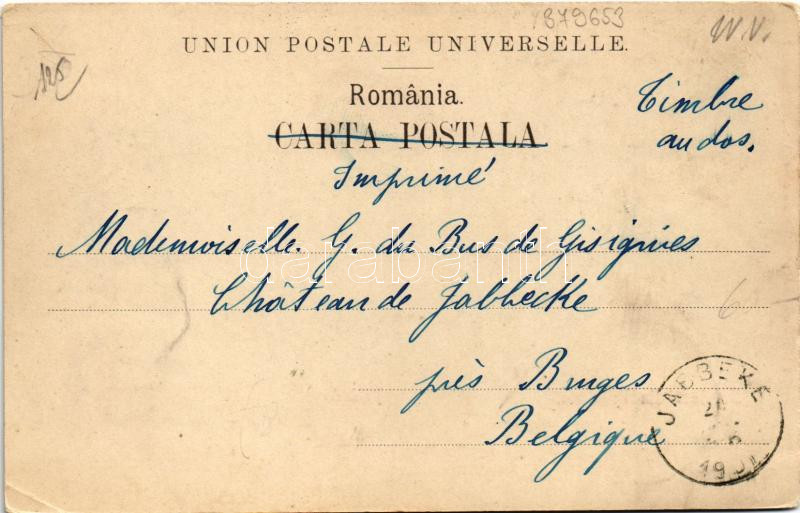 879653
W.V.
125
UNION POSTALE UNIVERSELLE.
România.
CARTA POSTALA
Timbre
au dos.
Imprimé
Mademoiselle. G. du Bus de Gisignies
Château de Jabbecke
près Bruges
Belgique
JABBEKE
darabanth